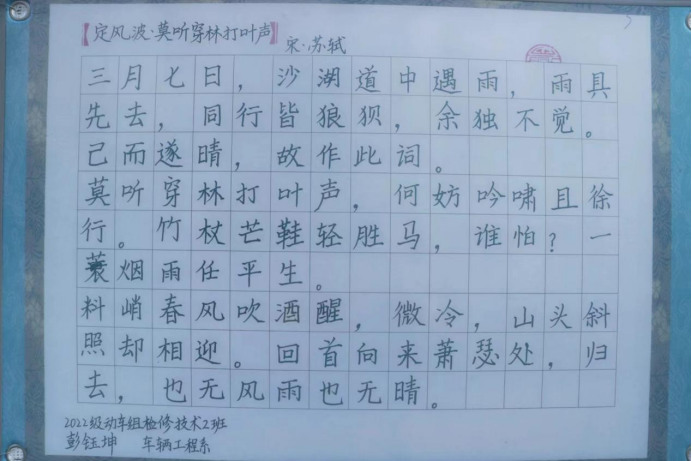 【定风波·莫听穿林打叶声】
宋·苏轼
三月七日，沙湖道中遇雨，雨具
先去，同行皆狼狈，余独不觉。
已而遂晴，故作此词。
莫听穿林打叶声，何妨吟啸且徐
行。竹杖芒鞋轻胜马，谁怕？一
蓑烟雨任平生。
料峭春风吹酒醒，微冷，山头斜
照却相迎。回首向来萧瑟处，归
去，也无风雨也无晴。
2022级动车组检修技术2班
彭钰坤 车辆工程系